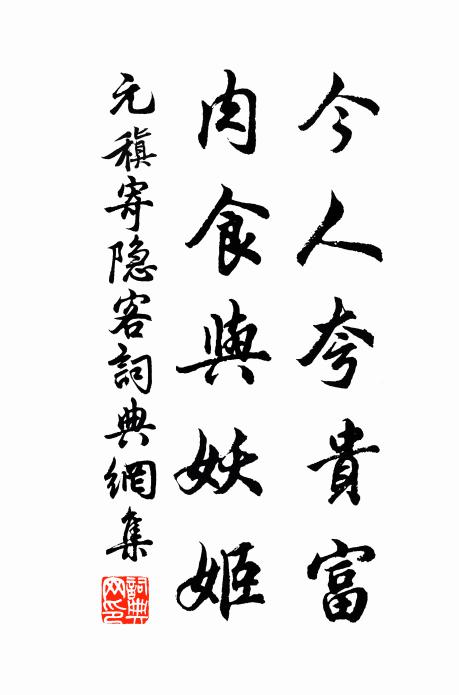 今人夸貴富
肉食與妖姬
元稹寄隐客詞典網集
詞典网印